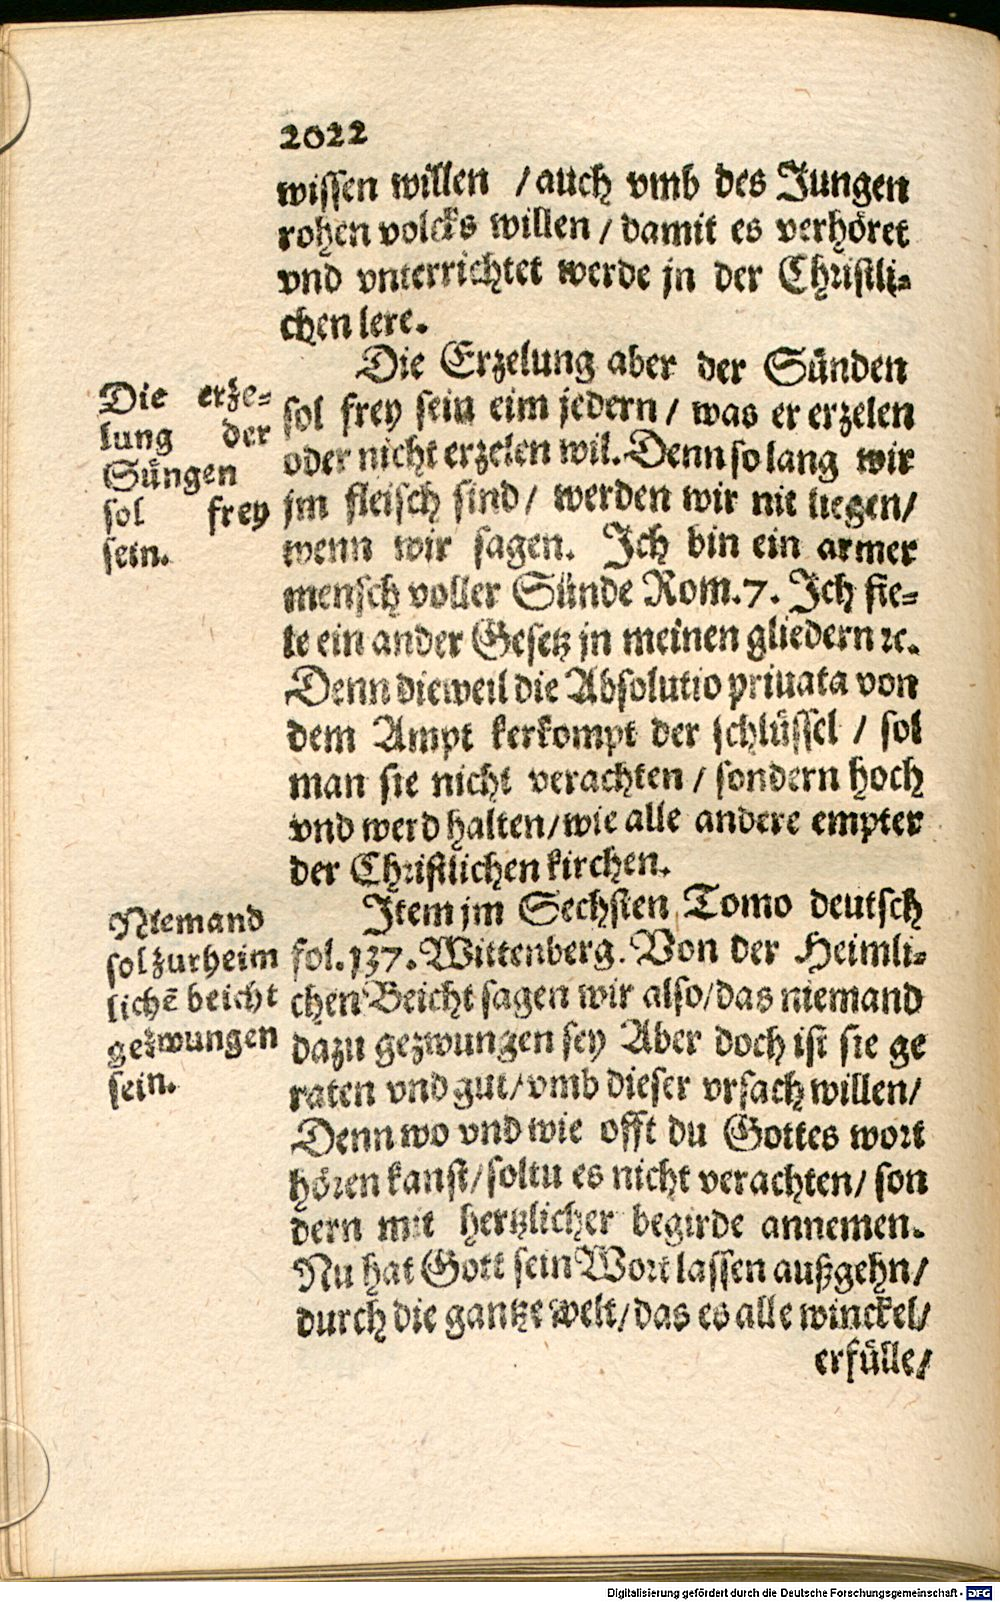 2022
wissen willen / auch vmb des Jungen
rohen volcks willen / damit es verhöret
vnd vnterrichtet werde jn der Christli-
chen lere.
Die Erzelung aber der Sünden
sol frey sein eim jedern / was er erzelen
oder nicht erzelen wil. Denn so lang wir
jm fleisch sind / werden wir nit liegen /
wenn wir sagen. Ich bin ein armer
mensch voller Sünde Rom. 7. Ich fie-
le ein ander Gesetz jn meinen gliedern ꝛc.
Denn dieweil die Absolutio priuata von
dem Ampt kerkompt der schlüssel / sol
man sie nicht verachten / sondern hoch
vnd werd halten / wie alle andere empter
der Christlichen kirchen.
Die erze-
lung der
Süngen
sol frey
sein.
Item jm Sechsten Tomo deutsch
fol. 137. Wittenberg. Von der Heimli-
chen Beicht sagen wir also / das niemand
dazu gezwungen sey Aber doch ist sie ge
raten vnd gut / vmb dieser vrsach willen /
Denn wo vnd wie offt du Gottes wort
hören kanst / soltu es nicht verachten / son
dern mit hertzlicher begirde annemen.
Nu hat Gott sein Wort lassen außgehn /
durch die gantze welt / das es alle winckel /
erfülle /
Niemand
sol zur heim
lichẽ beicht
gezwungen
sein.
Digitalisierung gefördert durch die Deutsche Forschungsgemeinschaft - DFG